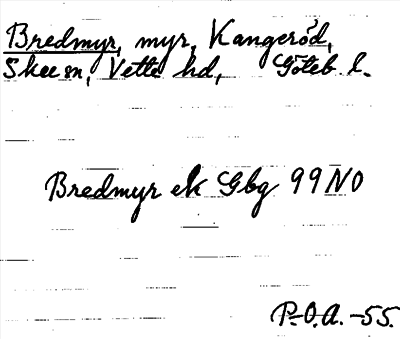 Bredmyr, myr, Kangeröd,
Skee sn, Vette hd, Göteb. l.
Bredmyr ek Gbg 99 NO
P.O.A. -55.